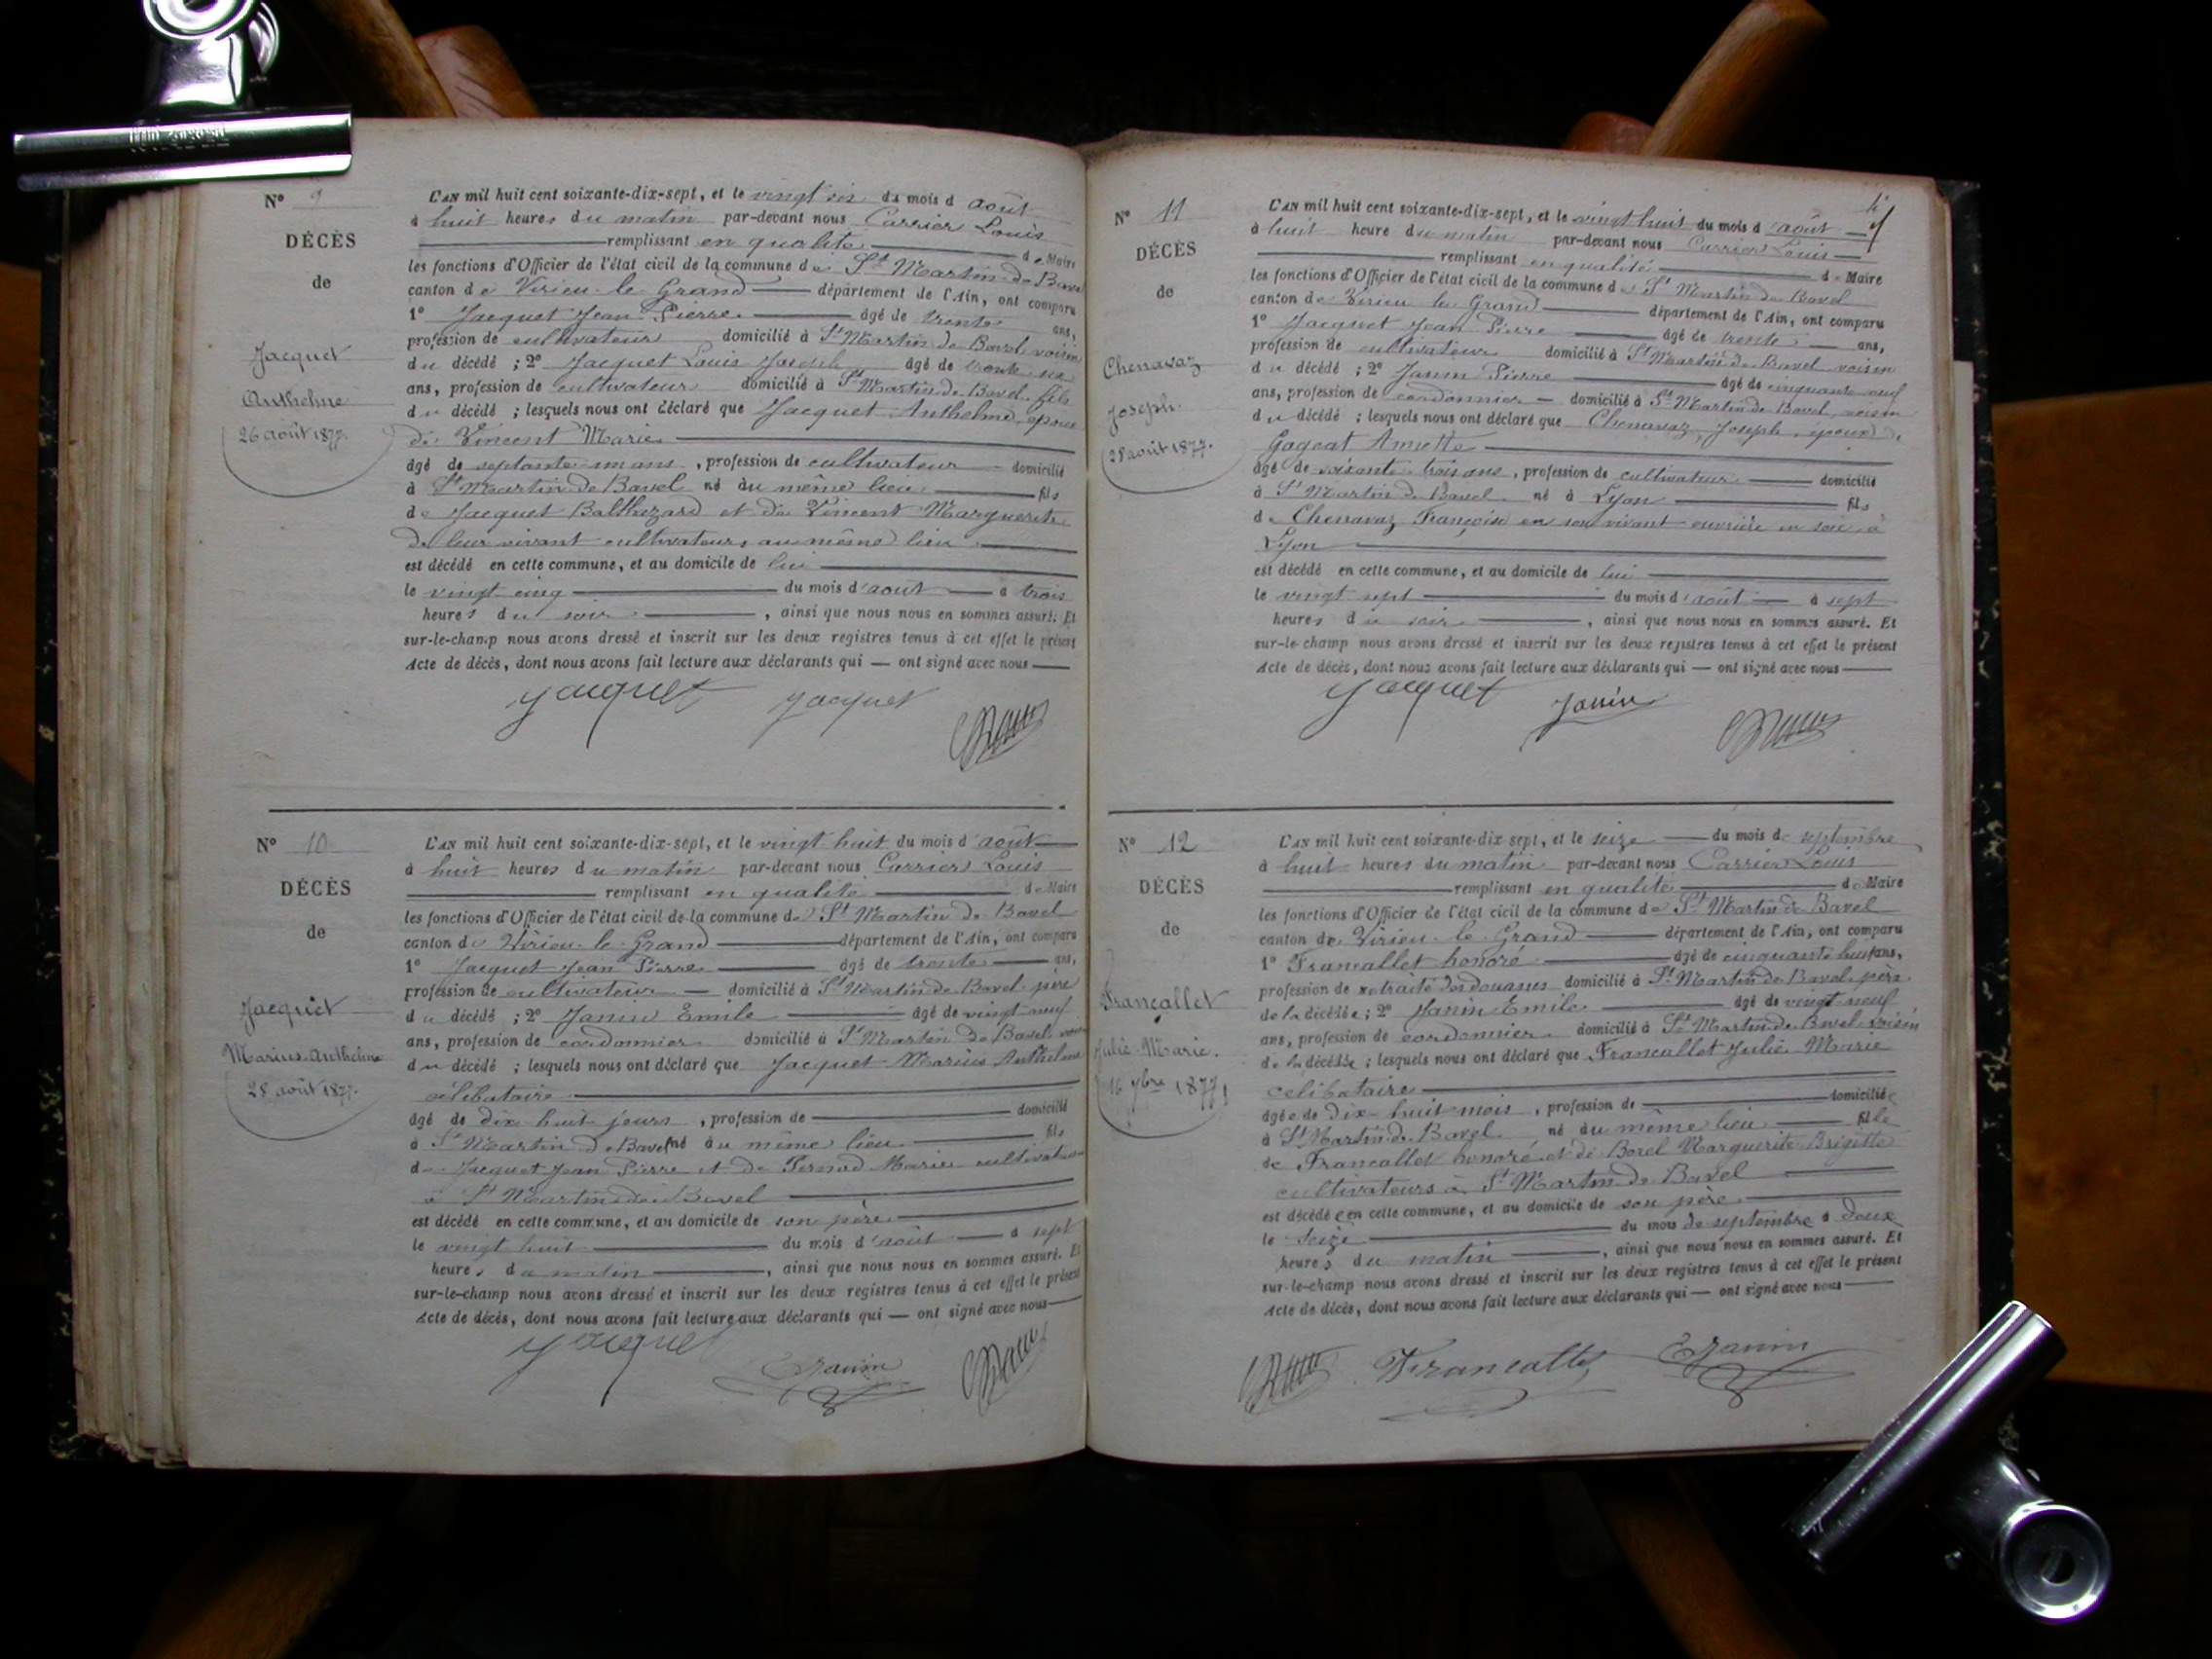 N° 9
DÉCÈS
de
Jacquet
Anthelme
26 août 1877.
L'AN mil huit cent soixante-dix-sept, et le vingt six du mois d'août
à huit heures du matin par-devant nous Carrier Louis
remplissant en qualité de Maire
les fonctions d'Officier de l'état civil de la commune de St Martin de Bavel
canton de Virieu le Grand département de l'Ain, ont comparu
1° Jacquet Jean Pierre âgé de trente ans,
profession de cultivateur domicilié à St Martin de Bavel voisin
du décédé ; 2° Jacquet Louis Joseph âgé de trente six
ans, profession de cultivateur domicilié à St Martin de Bavel fils
du décédé ; lesquels nous ont déclaré que Jacquet Anthelme, époux
de Vincent Marie
âgé de septante un ans, profession de cultivateur domicilié
à St Martin de Bavel né au même lieu fils
de Jacquet Balthazard et de Vincent Marguerite
de leur vivant cultivateurs au même lieu
est décédé en cette commune, et au domicile de lui
le vingt cinq du mois d'août à trois
heures du soir, ainsi que nous nous en sommes assuré. Et
sur-le-champ nous avons dressé et inscrit sur les deux registres tenus à cet effet le présent
Acte de décès, dont nous avons fait lecture aux déclarants qui — ont signé avec nous
Jacquet Jacquet
N° 10
DÉCÈS
de
Jacquet
Marius Anthelme
28 août 1877.
L'AN mil huit cent soixante-dix-sept, et le vingt huit du mois d'août
à huit heures du matin par-devant nous Carrier Louis
remplissant en qualité de Maire
les fonctions d'Officier de l'état civil de la commune de St Martin de Bavel
canton de Virieu le Grand département de l'Ain, ont comparu
1° Jacquet Jean Pierre âgé de trente ans,
profession de cultivateur — domicilié à St Martin de Bavel père
du décédé ; 2° Janin Emile âgé de vingt neuf
ans, profession de cordonnier domicilié à St Martin de Bavel
du décédé ; lesquels nous ont déclaré que Jacquet Marius Anthelme
célibataire
âgé de dix huit jours, profession de domicilié
à St Martin de Bavel né au même lieu fils
de Jacquet Jean Pierre et de Pernod Marie cultivateurs
à St Martin de Bavel
est décédé en cette commune, et au domicile de son père
le vingt huit du mois d'août à sept
heures du matin, ainsi que nous nous en sommes assuré. Et
sur-le-champ nous avons dressé et inscrit sur les deux registres tenus à cet effet le présent
Acte de décès, dont nous avons fait lecture aux déclarants qui — ont signé avec nous
Jacquet E Janin
N° 11
DÉCÈS
de
Chenavaz
Joseph.
28 août 1877.
L'AN mil huit cent soixante-dix-sept, et le vingt huit du mois d'août
à huit heure du matin par-devant nous Carrier Louis
remplissant en qualité de Maire
les fonctions d'Officier de l'état civil de la commune de St Martin de Bavel
canton de Virieu le Grand département de l'Ain, ont comparu
1° Jacquet Jean Pierre âgé de trente ans,
profession de cultivateur domicilié à St Martin de Bavel voisin
du décédé ; 2° Janin Pierre âgé de cinquante neuf
ans, profession de cordonnier — domicilié à St Martin de Bavel, voisin
du décédé ; lesquels nous ont déclaré que Chenavaz, Joseph, époux de
Gageat Annette
âgé de soixante trois ans, profession de cultivateur domicilié
à St Martin de Bavel né à Lyon fils
de Chenavaz Françoise en son vivant ouvrière en soie à
Lyon
est décédé en cette commune, et au domicile de lui
le vingt sept du mois d'août à sept
heures du soir, ainsi que nous nous en sommes assuré. Et
sur-le-champ nous avons dressé et inscrit sur les deux registres tenus à cet effet le présent
Acte de décès, dont nous avons fait lecture aux déclarants qui — ont signé avec nous
Jacquet Janin
N° 12
DÉCÈS
de
Francallet
Julie Marie.
16 7bre 1877
L'AN mil huit cent soixante-dix sept, et le seize du mois de septembre
à huit heures du matin par-devant nous Carrier Louis
remplissant en qualité de Maire
les fonctions d'Officier de l'état civil de la commune de St Martin de Bavel
canton de Virieu le Grand département de l'Ain, ont comparu
1° Francallet honoré âgé de cinquante huit ans,
profession de retraité des douanes domicilié à St Martin de Bavel père
de la décédée ; 2° Janin Emile âgé de vingt neuf
ans, profession de cordonnier domicilié à St Martin de Bavel voisin
de la décédée ; lesquels nous ont déclaré que Francallet Julie Marie
celibataire
âgée de dix-huit mois, profession de domicilié
à St Martin de Bavel né au même lieu fille
de Francallet honoré et de Borel Marguerite Brigitte
cultivateurs à St Martin de Bavel
est décédée en cette commune, et au domicile de son père
le seize du mois de septembre à deux
heures du matin, ainsi que nous nous en sommes assuré. Et
sur-le-champ nous avons dressé et inscrit sur les deux registres tenus à cet effet le présent
Acte de décès, dont nous avons fait lecture aux déclarants qui — ont signé avec nous
Francallet E Janin